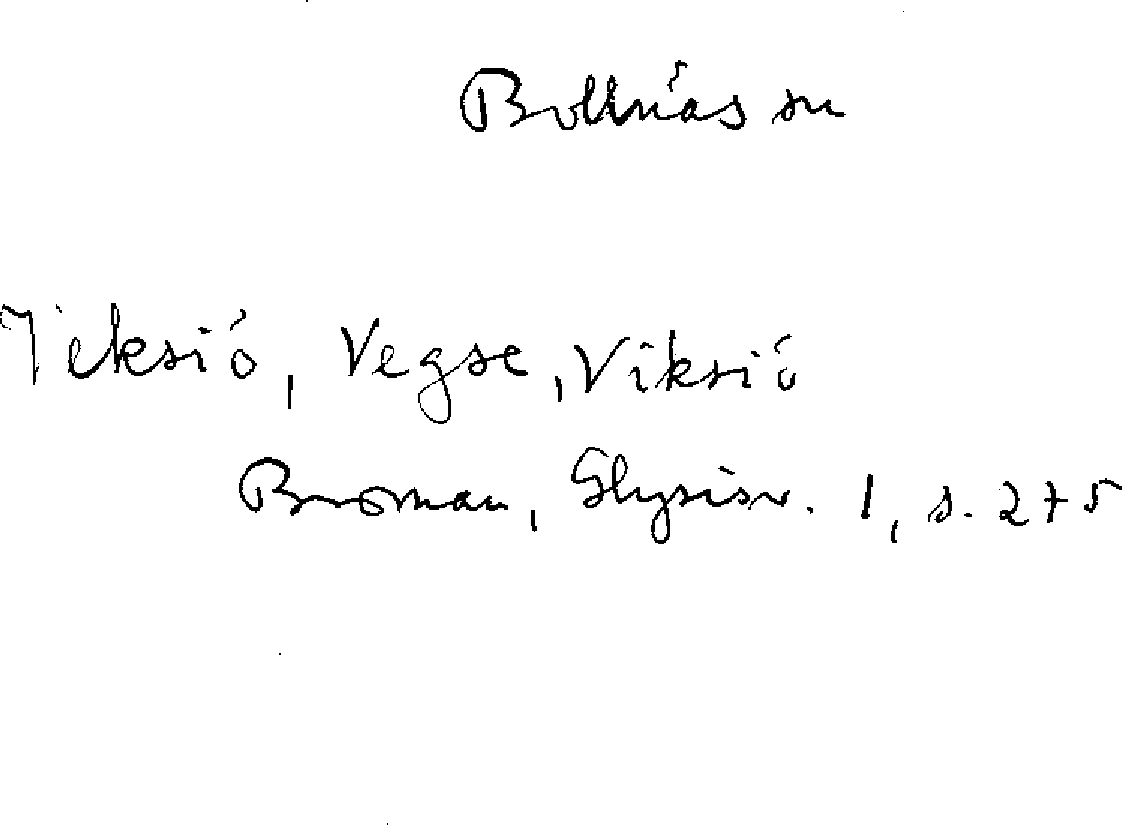 Bollnäs sn
Teksiö, Vegse, Viksiö
Broman, Glysisv. 1, s. 275